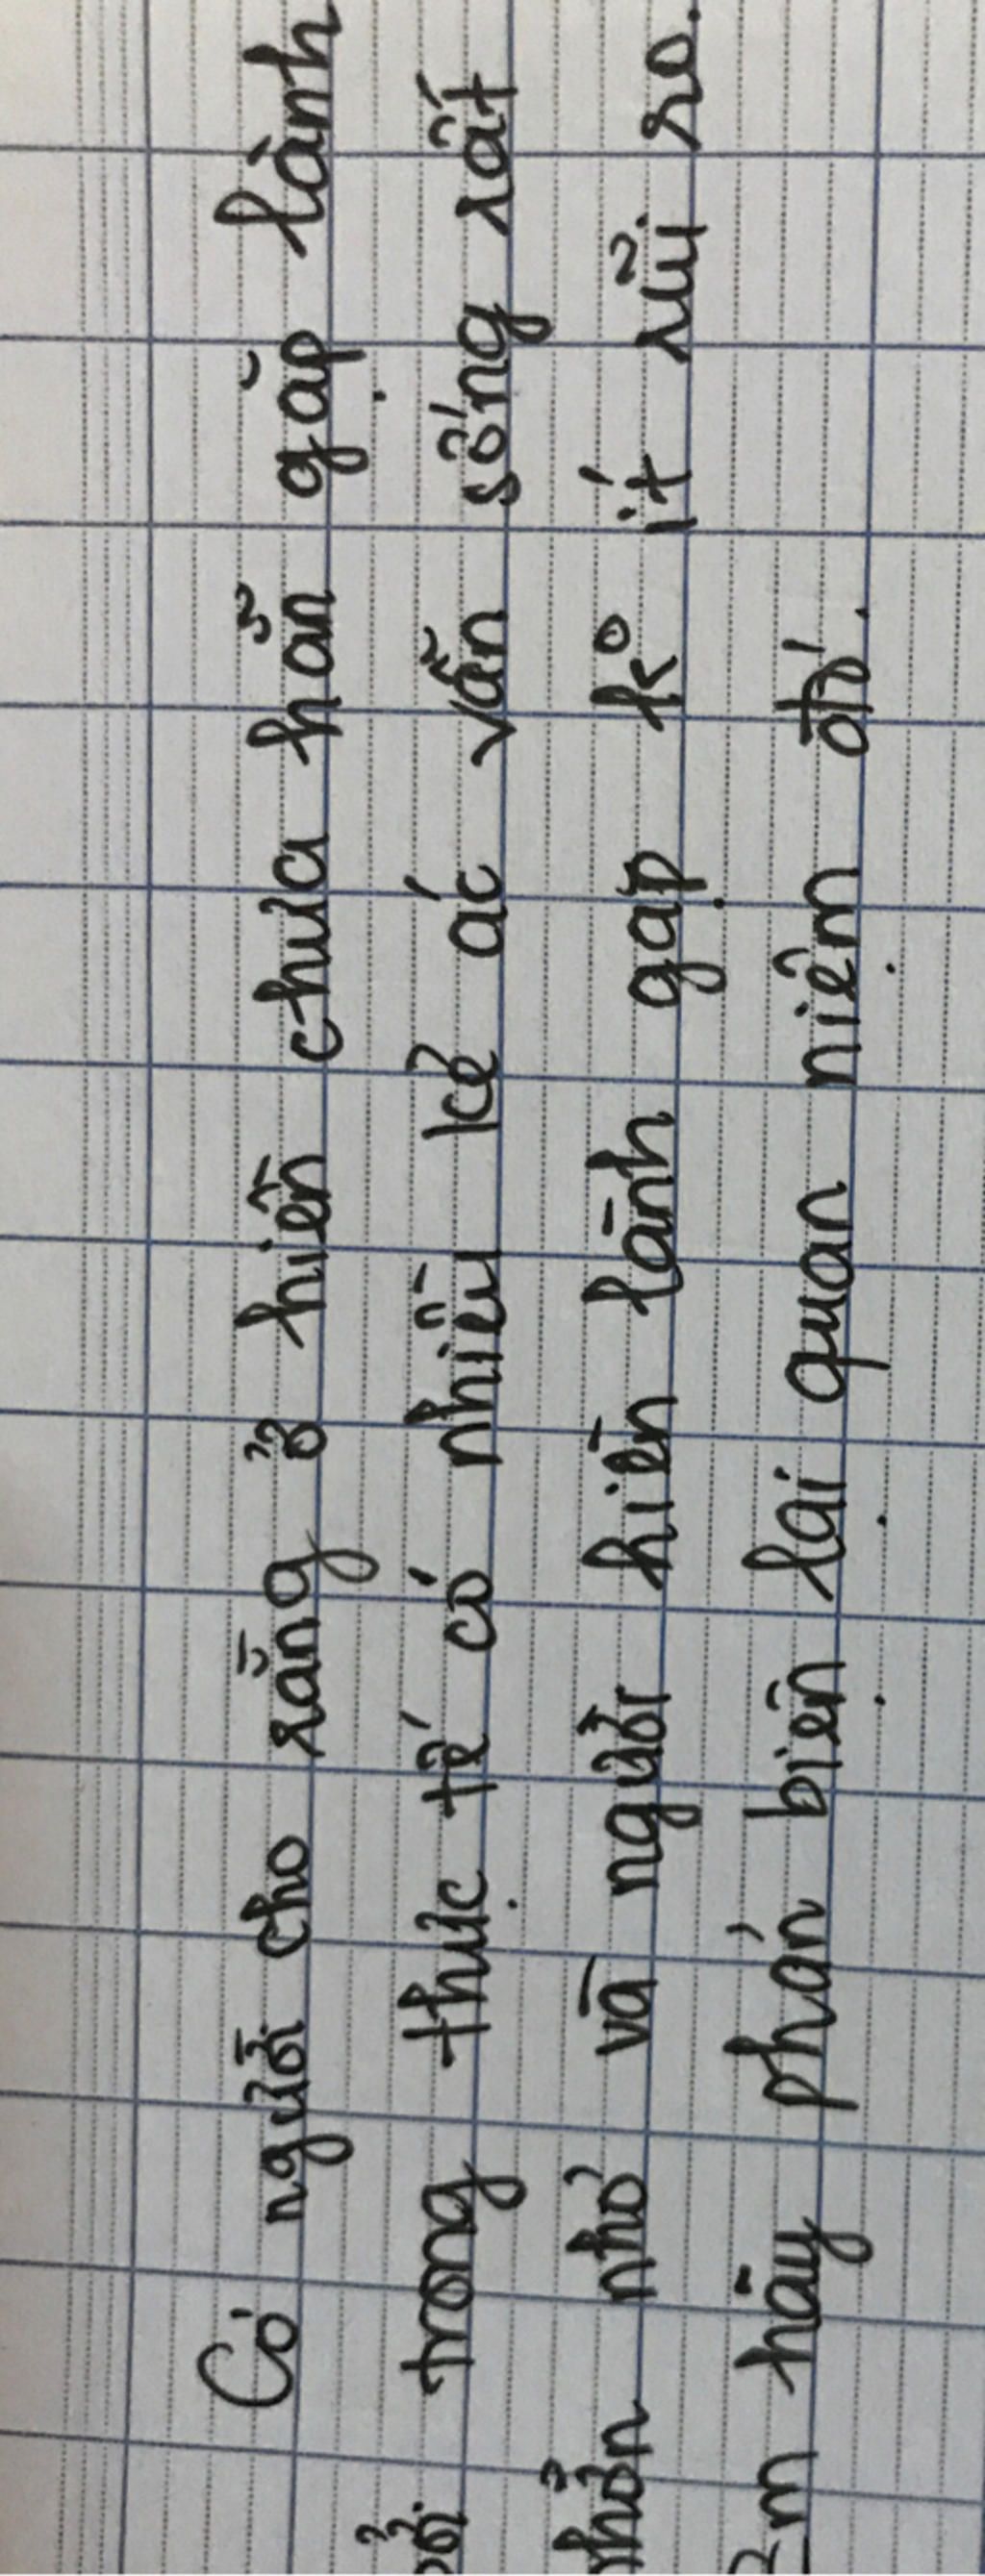 Có người cho rằng ở hiền chưa hẳn gặp lành
trong thực tế có nhiều kẻ ác vẫn sống rất
nhởn nhơ và người hiền lành gặp ko ít rủi ro.
hãy phản biện lại quan niệm đó.